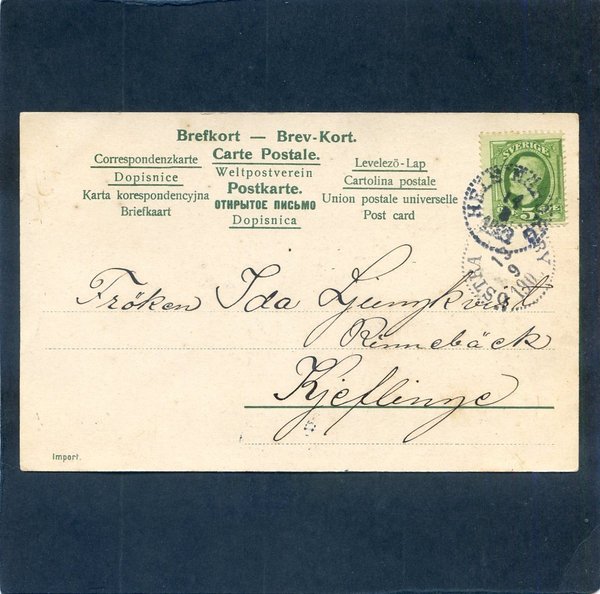 Brefkort — Brev-Kort.
Correspondenzkarte
Carte Postale.
Levelezö-Lap
Dopisnice
Weltpostverein
Cartolina postale
Karta korespondencyjna
Postkarte.
Union postale universelle
Briefkaart
ОТКРЫТОЕ ПИСЬМО
Post card
Dopisnica
SVERIGE
5
ÖSTRA
14
9
190
Fröken Ida Ljungkvist
Rinnebäck
Kjeflinge
Import.